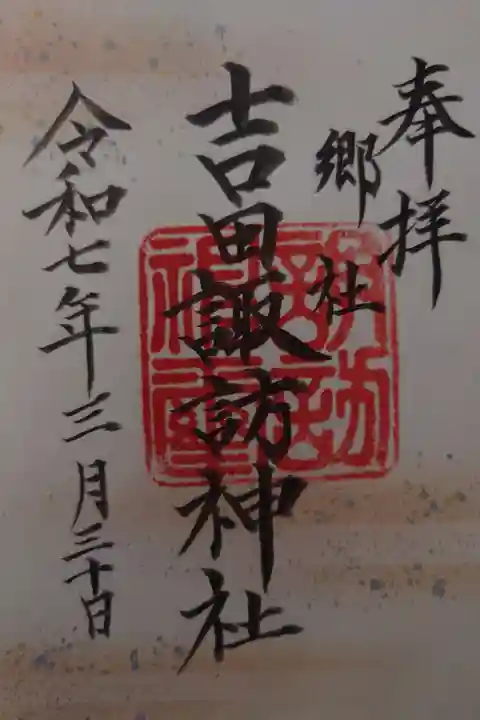 奉拝
郷社
吉田諏訪神社
諏訪神璽
令和七年三月三十日